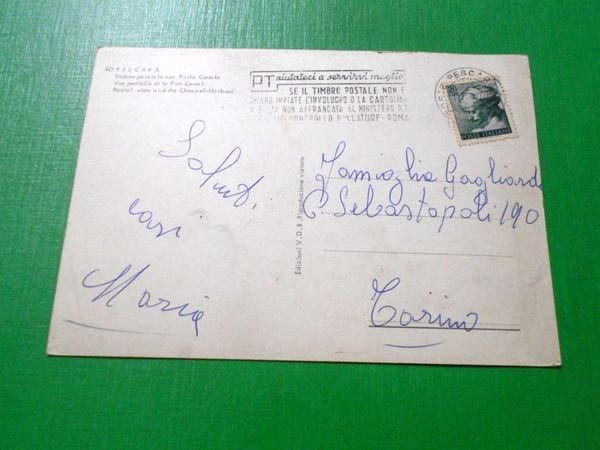 40 PESCARA
Veduta parziale con Porto Canale
Vue partielle et le Port Canal
Partial view and the Channel-Harbour
PT aiutateci a servirvi meglio
SE IL TIMBRO POSTALE NON È
CHIARO INVIATE L'INVOLUCRO O LA CARTOLINA
IN BUSTA NON AFFRANCATA AL MINISTERO P.T.
CONTROLLO BOLLATURE - ROMA
PESC
POSTE ITALIANE
Saluti
cari
Maria
Edizioni V.D.B. Riproduzione vietata
Famiglia Gagliardi
C. Sebastopoli 190
Torino